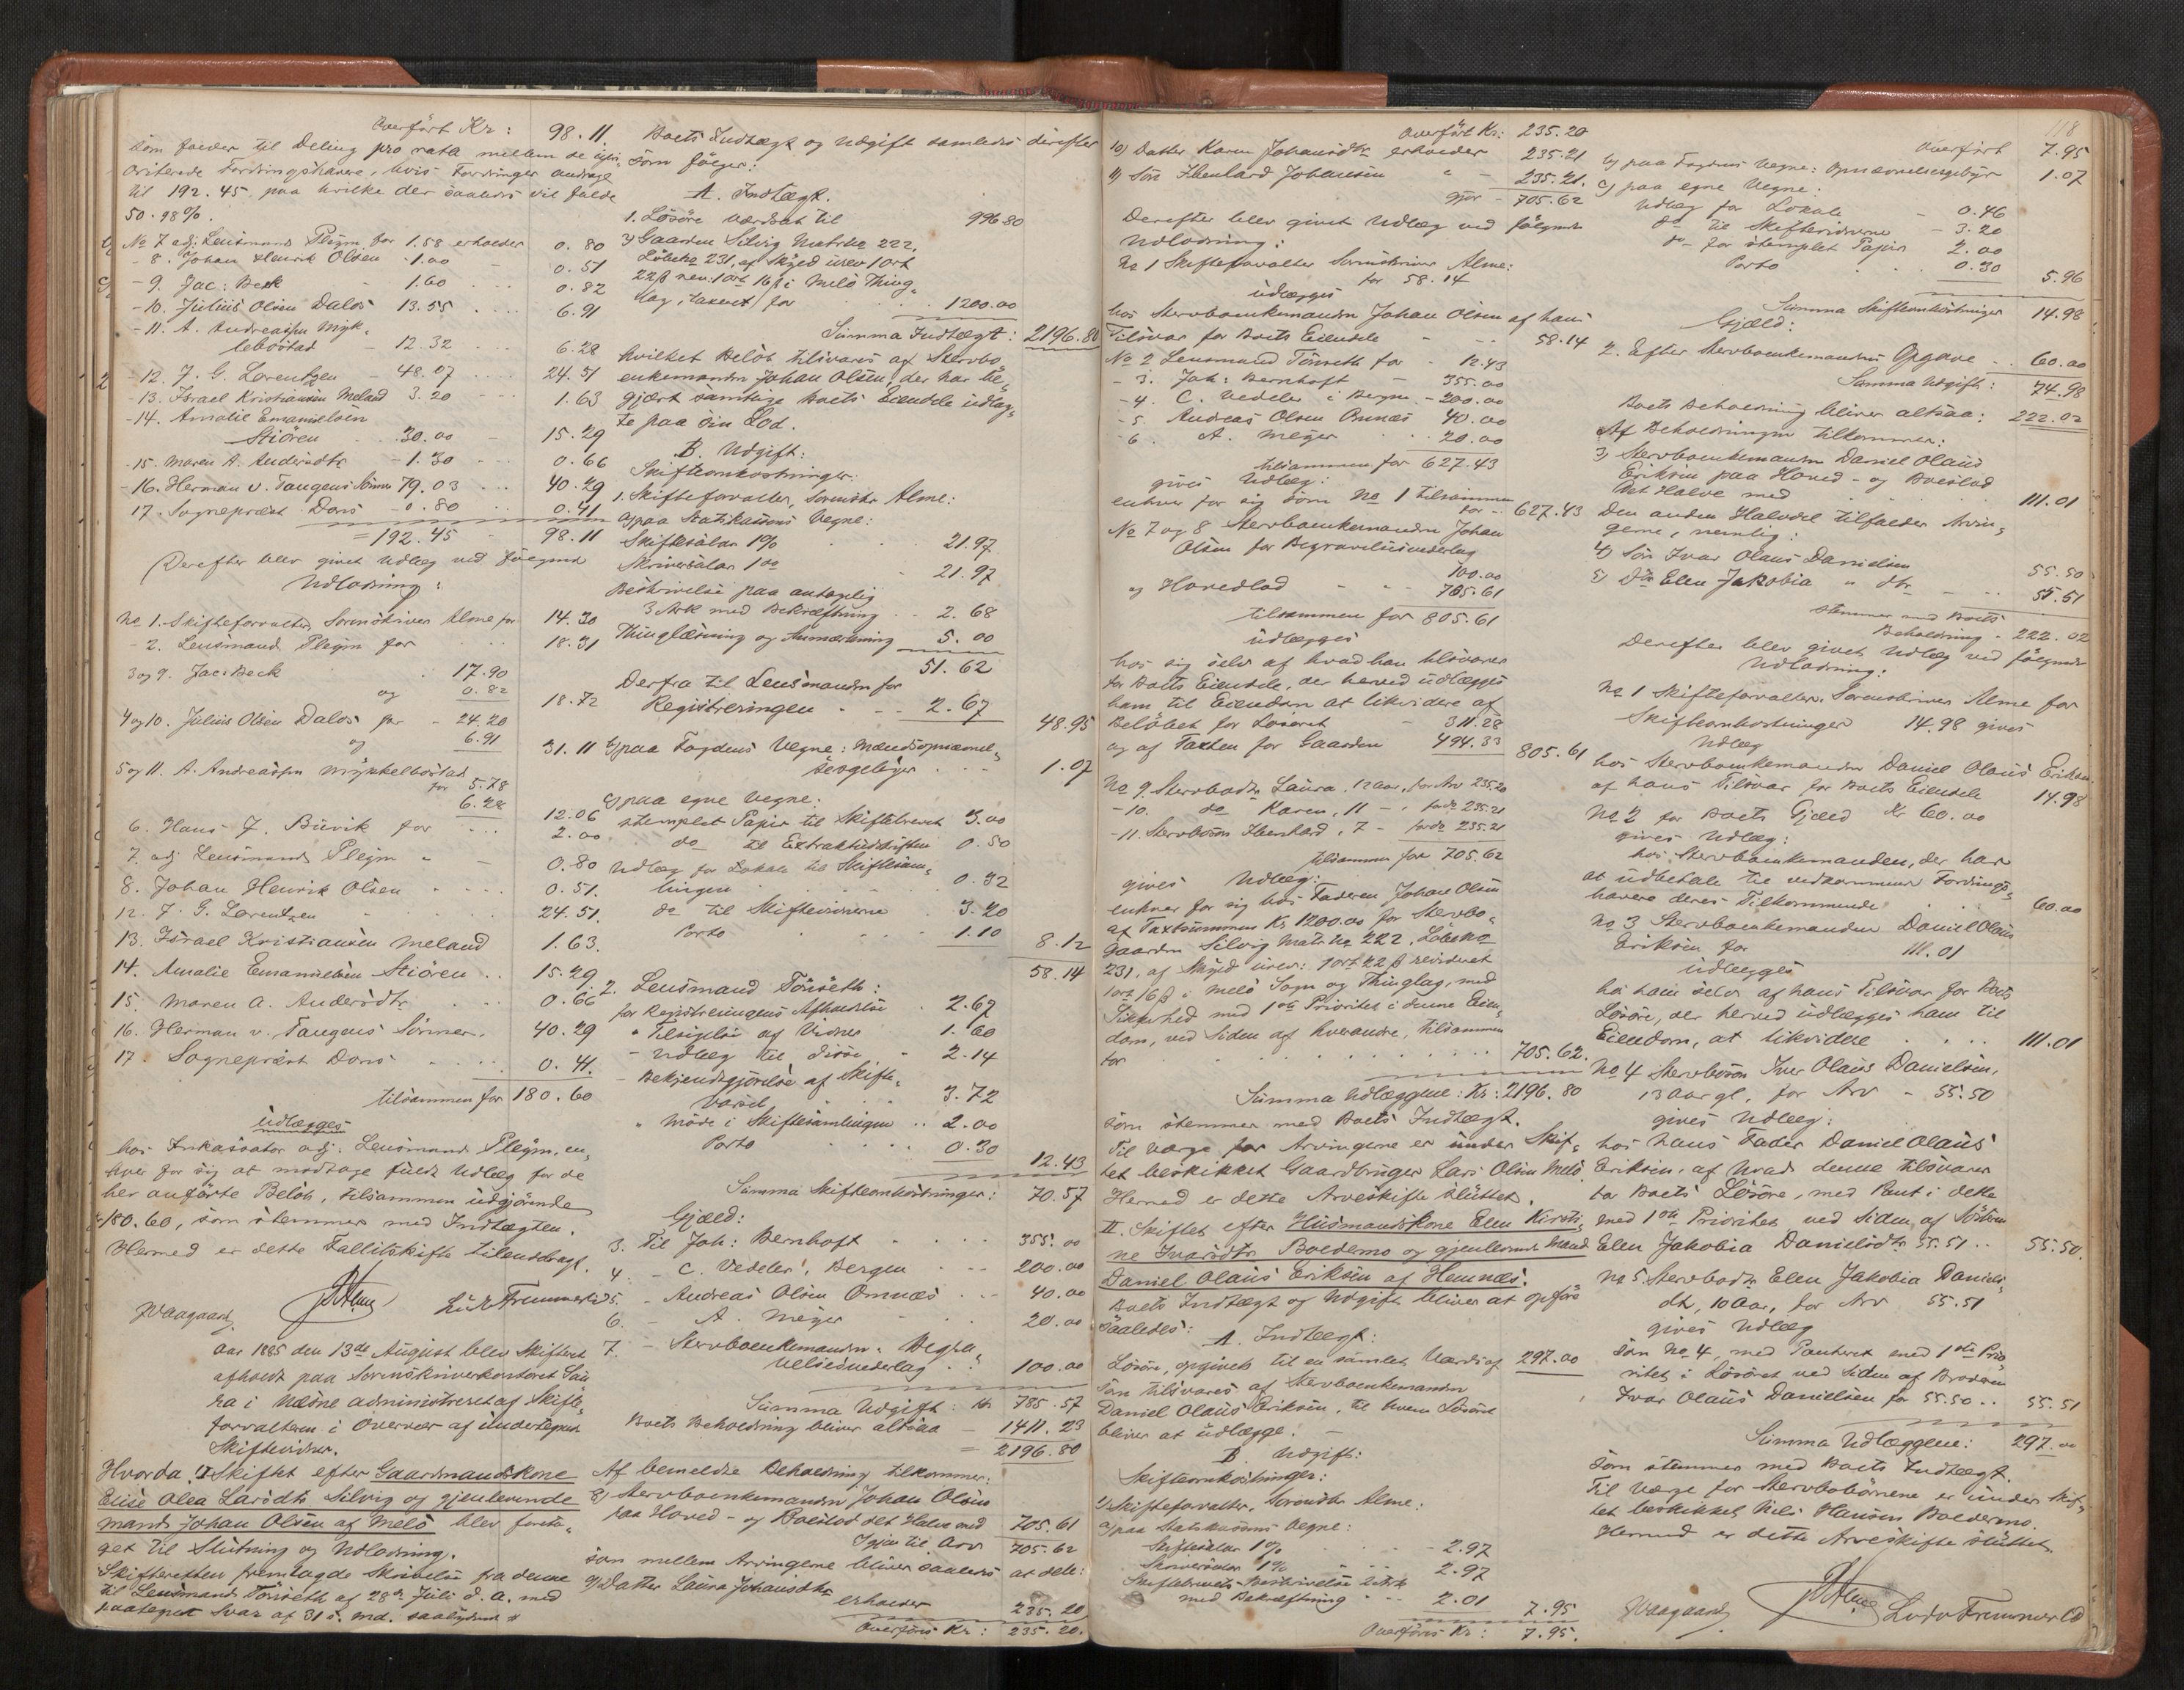 Overført Kr: 98.11
som falder til Deling pro rata mellem de upri-
oriterede Fordringshavere, hvis Fordringer andrage
til 192.45, paa hvilke der saaledes vil falde
50.98%.
No 7 adj: Lensmand Pleym for 1.58 erholder 0.80
- 8. Johan Henrik Olsen - 1.00 0.51
- 9. Jac: Beck 1.60 0.82
- 10. Julius Olsen Dalos 13.55 6.91
- 11. A. Andreassen Myk-
lebostad - 12.32 6.28
- 12. J. G. Lorentzen - 48.07 24.51
- 13. Israel Kristiansen Meland 3.20 1.63
- 14. Amalie Emanuelsen
Stiören 30.00 15.29
- 15. Maren A. Andersdtr - 1.30 0.66
- 16. Herman v. Tangens Sønner 79.03 40.29
17. Sogneprest Dons - 0.80 0.41
= 192.45 - 98.11
Derefter blev givet Udlæg ved følgende
Udlodning:
No 1. Skifteforvalter, Sorenskriver Alme for 14.30
- 2. Lensmand Pleym for 18.31
3 og 9. Jac: Beck 17.90
og 0.82 18.72
4 og 10. Julius Olsen Dalos for - 24.20
og 6.91 31.11
5 og 11. A. Andreassen Mykkelbostad
for 5.78
6.28 12.06
6. Hans J. Buvik for 2.00
7. adj Lensmand Pleym " 0.80
8. Johan Henrik Olsen 0.51.
12. J. G. Lorentzen 24.51.
13. Israel Kristiansen Meland 1.63.
14. Amalie Emanuelsen Stiören 15.29.
15. Maren A. Andersdtr 0.66
16. Herman v. Tangens Sønner. 40.29
17. Sogneprest Dons 0.41.
tilsammen for 180.60
udlægges
hos Inkassator adj: Lensmand Pleym, en-
hver for sig at modtage fuldt Udlæg for de
her anførte Beløb, tilsammen udgjørende
180.60, som stemmer med Indtægten.
Hermed er dette Fallitskifte tilendebragt.
JWaagaard Alme Ludv Tremmer
Aar 1885 den 13de August blev Skifteret
afholdt paa Sorenskriverkontoret San
ha i Næsne administreret af Skifte-
forvalteren i Overvær af undertegnede
Skiftevidner.
Hvorda: I Skiftet efter Gaardmandskone
Elise Olea Larsdtr Silvig og gjenlevende
mand Johan Olsen af Melø blev foreta-
get til Slutning og Udlodning.
Skifteretten fremlagde Skrivelse fra denne
til Lensmand Tönseth af 28de Juli d. A. med
paategnet Svar af 31 s. md. saalydende
Boets Indtægt og Udgift samledes derefter
som følger:
A. Indtægt.
1. Løsöre værdsat til 996.80
2) Gaarden Silvig Matr No 222,
Löbe No 231, af Skyld urev 1 ort
22 β rev. 1 ort 16 β i Melö Thing-
lag, taxeret for 1200.00
Summa Indtægt: 2196.80
hvilket Beløb tilsvares af Stervbo-
enkemanden Johan Olsen, der har be-
gjært samtlige Boets Eiendele udlag-
te paa sin Lod.
B. Udgift:
Skifteomkostninger:
1. Skifteforvalter, Sorenskr Alme:
a) paa Statskassens Vegne:
Skiftesalær 1% 21.97
Skriversalær 1 do 21.97
Beskrivelse paa antagelig
3 Ark med Bekræftning 2.68
Thinglæsning og Anmærkning 5.00
51.62
Derfra til Lensmanden for
Registreringen 2.67 48.95
b) paa Fogdens Vegne: Mændsopnævnel-
sesgebyr 1.07
c) paa egne Vegne:
stemplet Papir til Skiftebrevet 3.00
do til Extraktudskriften 0.50
Udlæg for Lokale til Skiftesam-
lingen 0.32
do til Skiftevidnerne 3.20
Porto 1.10 8.12
58.14
2. Lensmand Tönseth:
for Registreringens Afholdelse 2.67
" Tilsigelse af Vidner 1.60
- Udlæg til disse 2.14
- Bekjendtgjørelse af Skifte-
varsel 3.72
" Møde i Skiftesamlingen 2.00
Porto 0.30 12.43
Summa Skifteomkostninger: 70.57
Gjæld:
3. Til Joh: Bernhoft 355.00
4. - C. Vedeler, Bergen 200.00
5. - Andreas Olsen Önnæs 40.00
6. - A. Meyer 20.00
7. - Stervboenkemanden, Begra-
velsesvederlag 100.00
Summa Udgift: Kr 785.57
Boets Beholdning bliver altsaa - 1411.23
= 2196.80
Af bemeldte Beholdning tilkommer:
8) Stervboenkemanden Johan Olsen
paa Hoved- og Boeslod det Halve med 705.61
Igjen til Arv 705.62
som mellem Arvingerne bliver saaledes at dele:
9) Datter Laura Johansdtr
erholder 235.20
Overføres Kr: 235.20.
Overført Kr: 235.20
10) Datter Karen Johansdtr erholder 235.21
11) Søn Ebenhard Johansen " - 235.21.
gjør - 705.62
Derefter blev givet Udlæg ved følgende
Udlodning:
No 1 Skifteforvalter Sorenskriver Alme:
for 58.14
udlægges
hos Stervboenkemanden Johan Olsen af hans
Tilsvar for Boets Eiendele - 58.14
No 2 Lensmand Tönseth for - 12.43
- 3. Joh: Bernhoft - 355.00
- 4. C. Vedeler i Bergen - 200.00
- 5. Andreas Olsen Önnæs 40.00
- 6. A. Meyer 20.00
tilsammen for 627.43
gives Udlæg:
enhver for sig som No 1 tilsammen
for - 627.43
No 7 og 8 Stervboenkemanden Johan
Olsen for Begravelsesvederlag
100.00
og Hovedlod - 705.61
tilsammen for 805.61
udlægges
hos sig selv af hvad han tilsvarer
for Boets Eiendele, der herved udlægges
ham til Eiendom at likvidere af
Beløbet for Løsøret - 311.28
og af Taxten for Gaarden 494.33 805.61
No 9. Stervbodtr Laura, 12 Aar, for Arv 235.20
- 10. do Karen, 11 - , for do 235.21
- 11. Stervbosøn Ebenhard, 7 - for do 235.21
tilsammen for 705.62
gives Udlæg:
enhver for sig hos Faderen Johan Olsen
af Taxtsummen Kr 1200.00 for Stervbo-
gaarden Silvig Matr No 222, Löbe No
231, af Skyld urev: 1 ort 22 β revideret
1 ort 16 β i Melö Sogn og Thinglag, med
Sikkerhed med 1ste Prioritet i denne Eien-
dom, ved Siden af hverandre, tilsammen
for 705.62.
Summa Udlæggene: Kr: 2196.80
som stemmer med Boets Indtægt.
Til Værge for Arvingerne er under Skif-
tet beskikket Gaardbruger Lars Olsen Melö.
Hermed er dette Arveskifte sluttet.
II. Skiftet efter Husmandskone Elen Kirsti-
ne Ivarsdtr Boldermo og gjenlevende Mand
Daniel Olaus Eriksen af Hemnæs.
Boets Indtægt og Udgift bliver at opføre
saaledes:
A. Indtægt:
Løsøre, opgivet til en samlet Værdi af 297.00
som tilsvares af Stervboenkemanden
Daniel Olaus Eriksen, til hvem Løsøret
bliver at udlægge.
B. Udgift:
Skifteomkostninger:
1) Skifteforvalter, Sorenskr Alme:
a) paa Statskassens Vegne:
Skiftesalær 1% 2.97
Skriversalær 1% 2.97
Skiftebrevets Beskrivelse 2 Ark
med Bekræftning 2.01 7.95
Overføres Kr: 7.95.
118
Overført 7.95
b) paa Fogdens Vegne: Opnævnelsesgebyr 1.07
c) paa egne Vegne:
Udlæg for Lokale - 0.46
do til Skiftevidnerne - 3.20
do for stemplet Papir 2.00
Porto 0.30 5.96
Summa Skifteomkostninger 14.98
Gjæld:
2. Efter Stervboenkemandens Opgave 60.00
Summa Udgift: 74.98
Boets Beholdning bliver altsaa: 222.02
Af Beholdningen tilkommer:
3) Stervboenkemanden Daniel Olaus
Eriksen paa Hoved- og Boeslod
det Halve med 111.01
Den anden Halvdel tilfalder Arvin-
gerne, nemlig:
4) Søn Ivar Olaus Danielsen 55.50
5) Dtr Elen Jakobia " dtr 55.51
stemmer med Boets
Beholdning - 222.02
Derefter blev givet Udlæg ved følgende
Udlodning:
No 1 Skifteforvalter, Sorenskriver Alme for
Skifteomkostninger 14.98 gives
Udlæg
hos Stervboenkemanden Daniel Olaus Eriksen
af hans Tilsvar for Boets Eiendele 14.98
No 2 for Boets Gjæld Kr 60.00
gives Udlæg:
hos Stervboenkemanden, der har
at udbetale til vedkommende Fordrings-
havere deres Tilkommende 60.00
No 3 Stervboenkemanden Daniel Olaus
Eriksen for 111.01
udlægges
hos ham selv af hans Tilsvar for Boets
Løsöre, der herved udlægges ham til
Eiendom, at likvidere 111.01
No 4 Stervbosøn Iver Olaus Danielsen,
13 Aar gl, for Arv - 55.50
gives Udlæg:
hos hans Fader Daniel Olaus
Eriksen, af hvad denne tilsvarer
for Boets Løsöre, med Pant i dette
med 1ste Prioritet ved Siden af Søsteren
Elen Jakobia Danielsdtr 55.51 55.50.
No 5. Stervbodtr Elen Jakobia Daniels-
dtr, 10 Aar, for Arv 55.51
gives Udlæg
som No 4, med Panteret med 1ste Prio-
ritet i Løsøret ved Siden af Broderen
Ivar Olaus Danielsen for 55.50 55.51
Summa Udlæggene: 297.00
som stemmer med Boets Indtægt.
Til Værge for Stervbobörnene er under Skif-
tet beskikket Nils Hansen Boldermo.
Hermed er dette Arveskifte sluttet.
JWaagaard Alme Ludv Tremmer